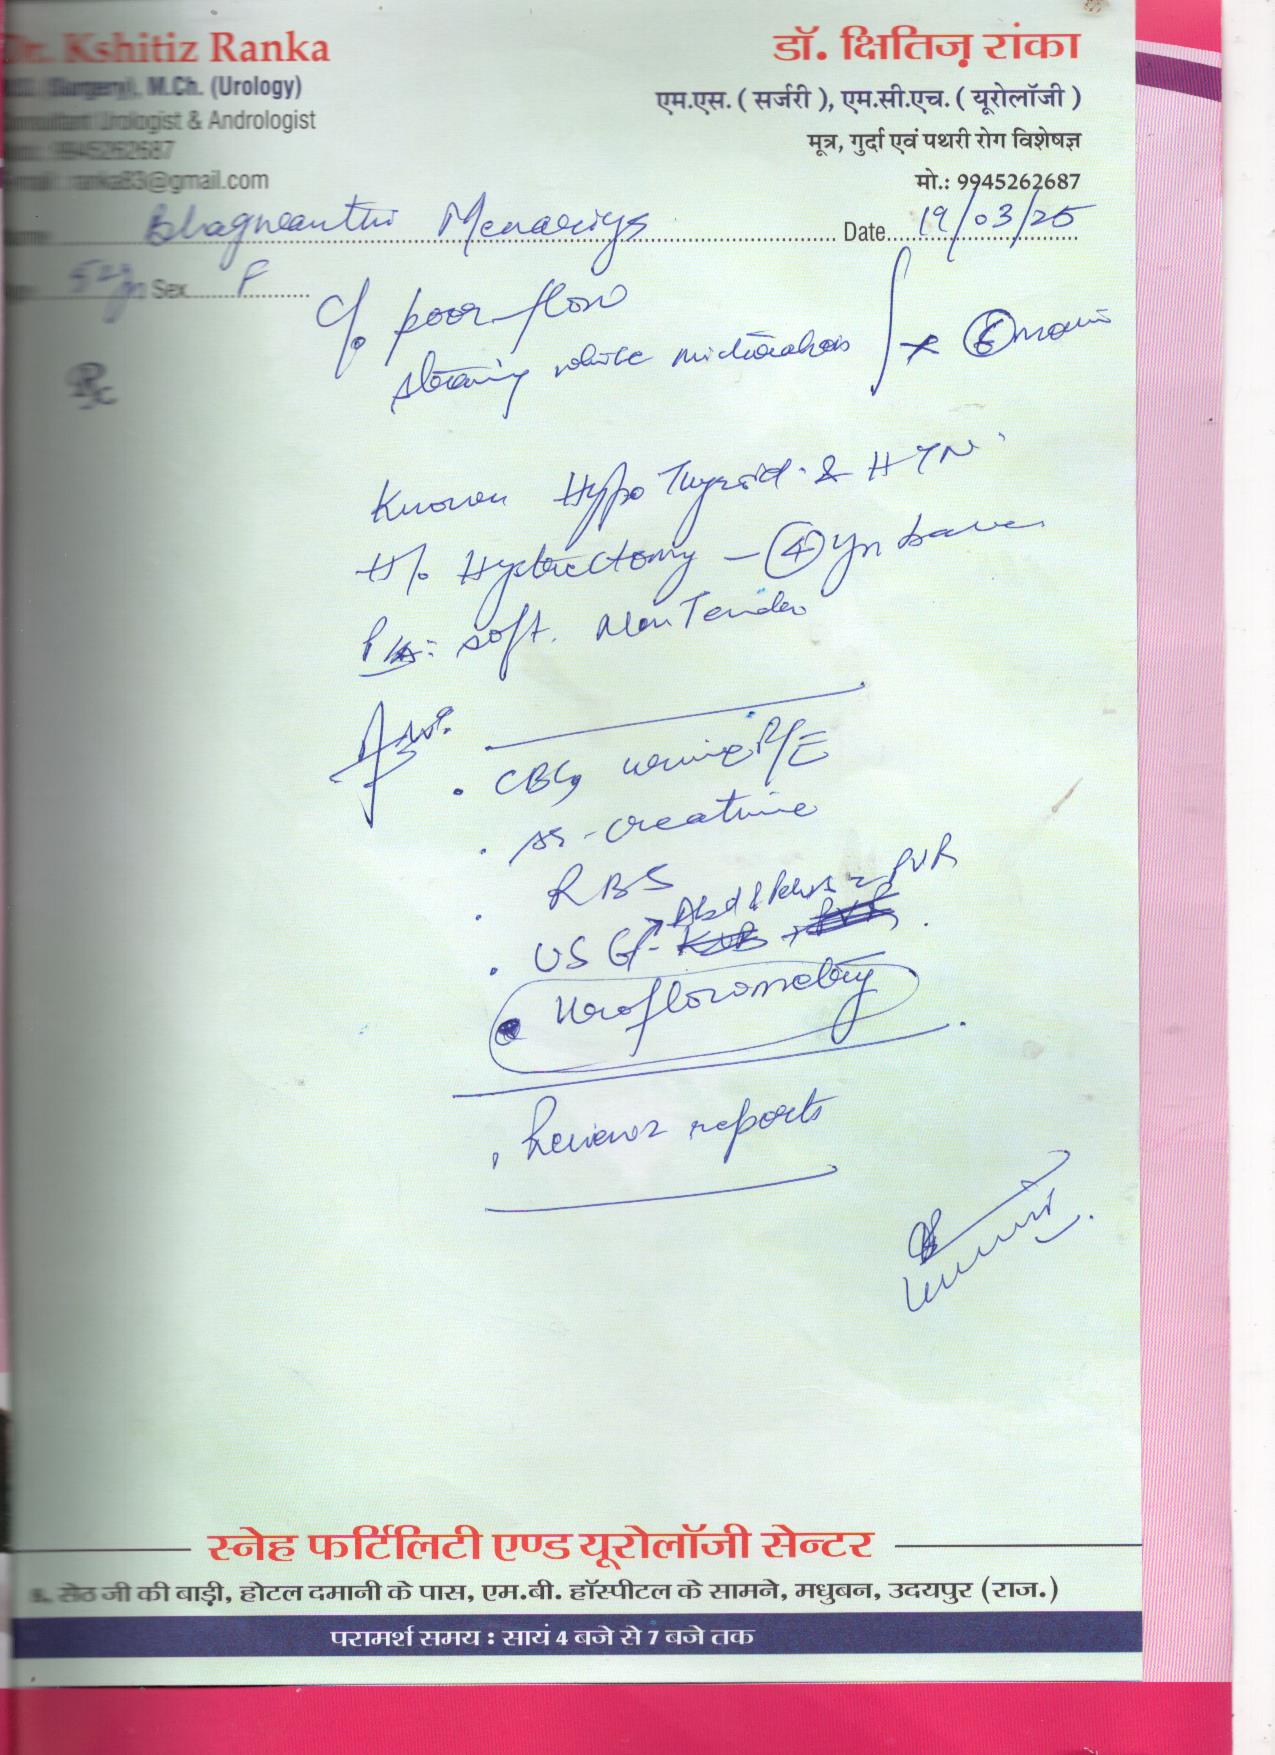 Dr. Kshitiz Ranka
MS (Surgery), M.Ch. (Urology)
Consultant Urologist & Andrologist
9945262687
ranka83@gmail.com
डॉ. क्षितिज़ रांका
एम.एस. ( सर्जरी ), एम.सी.एच. ( यूरोलॉजी )
मूत्र, गुर्दा एवं पथरी रोग विशेषज्ञ
मो.: 9945262687
Name Menariya Date 19/03/25
Age Sex F
C/o poor flow
straining while
Known Hypo Thyroid & HTN
H/o Hysterectomy - 4
P/A: soft. Non Tender
Adv.
CBC, urine R/E
sr-creatinine
RBS
USG - Abd & Pelvis PVR
Uroflowmetry
Review reports
स्नेह फर्टिलिटी एण्ड यूरोलॉजी सेन्टर
सेठ जी की बाड़ी, होटल दमानी के पास, एम.बी. हॉस्पीटल के सामने, मधुबन, उदयपुर (राज.)
परामर्श समय : सायं 4 बजे से 7 बजे तक